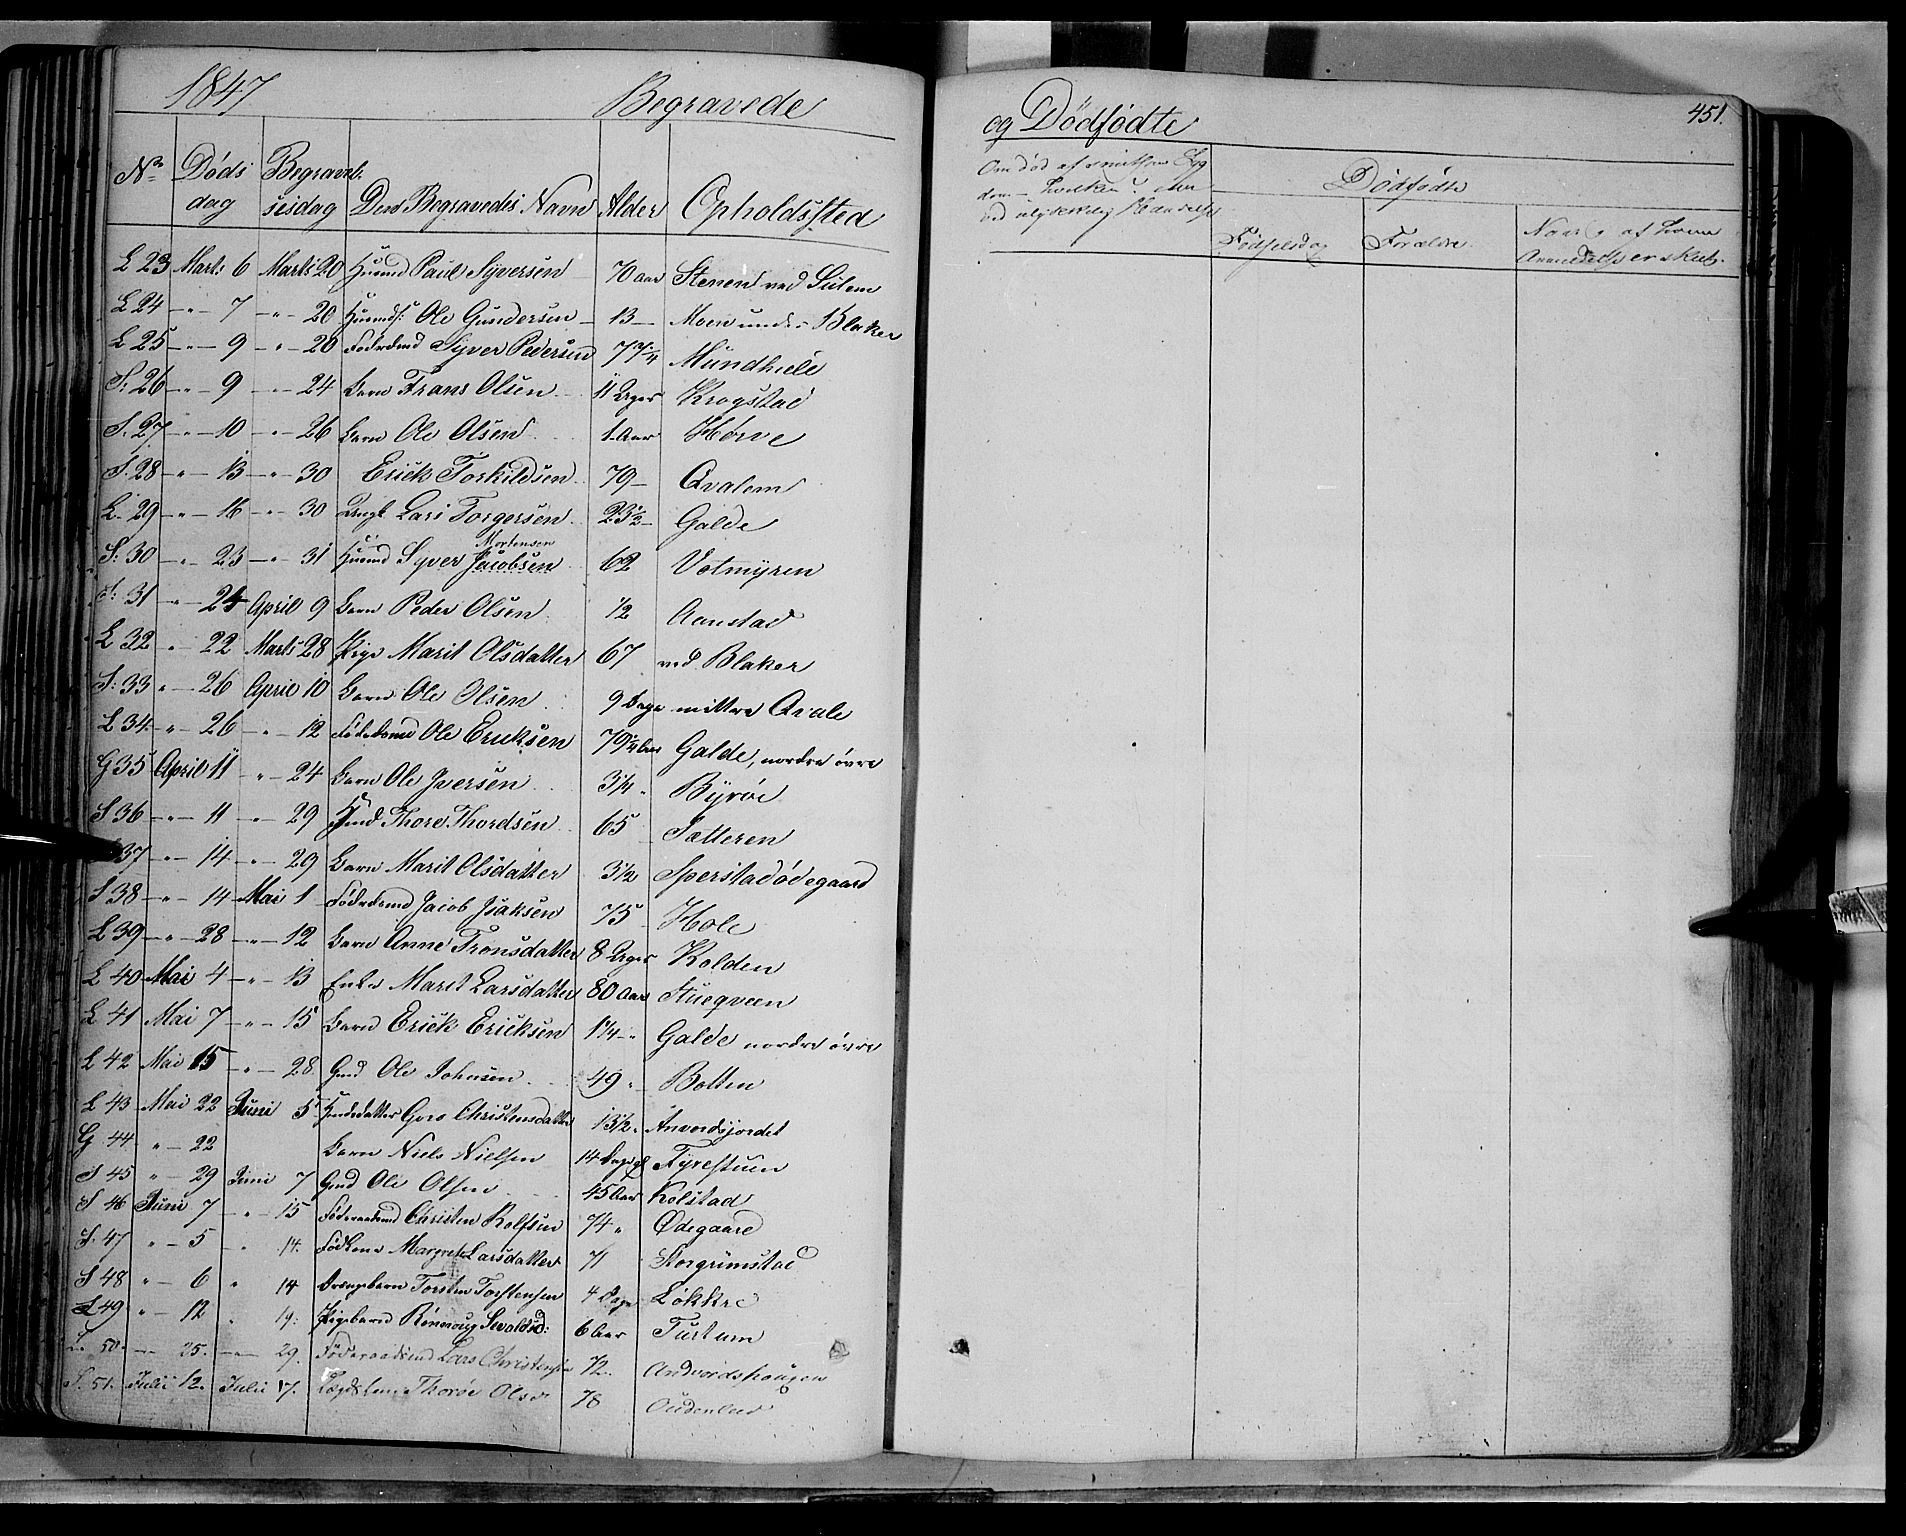 1847 Begravede og Dødfødte 451.
No Døds dag Begravelsesdag Den Begravedes Navn Alder Opholdssted
Om død af smitsom Syg
dom - hvilken? eller
ved ulykkelig Hændelse
Dødfødte
Fødselsdag Forældre
Naar af hvem
Anmeldelse er skeet.
L 23 Marts 6 Marts 20 Huusmd Paul Syversen 70 aar Steenen ved Sulem
L 24 " 7 " 20 Huusmds: Ole Gundersen 13 Moen under Blaker
L 25 " 9 " 20 Føderdmd Syver Pedersen 77 3/4 Mundhiele
S: 26 " 9 " 24 Barn Frans Olsen 11 Uger Krogstad
S. 27 " 10 " 26 Barn Ole Olsen 1 Aar Hörve
S. 28 " 13 " 30 Erick Torkildsen 79 Qvalem
L. 29 " 16 " 30 Ungk Lars Torgersen 23 1/2 Galde
S: 30 " 23 " 31 Huusmd Syver Jacobsen Mortensen 62 Volmyren
S: 31 " 24 April 9 Barn Peder Olsen 1/2 Aanstad
L 32 " 22 Marts 28 Pige Marit Olsdatter 67 ved Blaker
S: 33 " 26 April 10 Barn Ole Olsen 9 Dage mittre Qvale
L 34 " 26 " 12 Føderdsmd Ole Ericksen 79 1/4 Aar Galde, nordre øvre
G 35 April 11 " 24 Barn Ole Iversen 3/4 " Byrøe
S 36 " 11 " 29 Hmd Thord Thordsen 65 Sætteren
37 " 14 " 29 Barn Marit Olsdatter 3 1/2 Sperstadødegaard
S 38 " 14 Mai 1 Føderdsmd Jacob Isaksen 75 Hole
L 39 " 28 " 12 Barn Anne Tronsdatter 8 Uger Kolden
L 40 Mai 4 " 13 Enke Marit Larsdatter 80 Aar Stueqveen
L 41 Mai 7 " 15 Barn Erick Ericksen 1 1/4 " Galde nordre øvre
L 42 Mai 15 " 28 Gmd Ole Johnsen 49 " Bolten
L 43 Mai 22 Juni 5 Hmdsdatter Goro Christensdatter 13 1/2 " Anvordsjordet
G 44 " 22 Barn Niels Nielsen 14 Dage gl Fyrestuen
S 45 " 29 Juni 7 Gmd Ole Olsen 45 Aar Kolstad
S 46 Juni 7 " 15 Føderaadsmd Christen Rolfsen 74 " Ødegaard
S. 47 " 5 " 14. Margrete Larsdatter 71 Storgrimstad
S 48 " 6 " 14 Drengebarn Torsten Torstensen 4 Dage Løkkre
L 49 " 12 " 19: Pigebarn Rönnoug Sevaldsd: 6 Aar Turtum
L. 50. " 25. " 29. Føderaadsmd Lars Christensen 72. Andvordshougen
S. 51. Julii 12. Julii 17. Thorøe Olsd 78